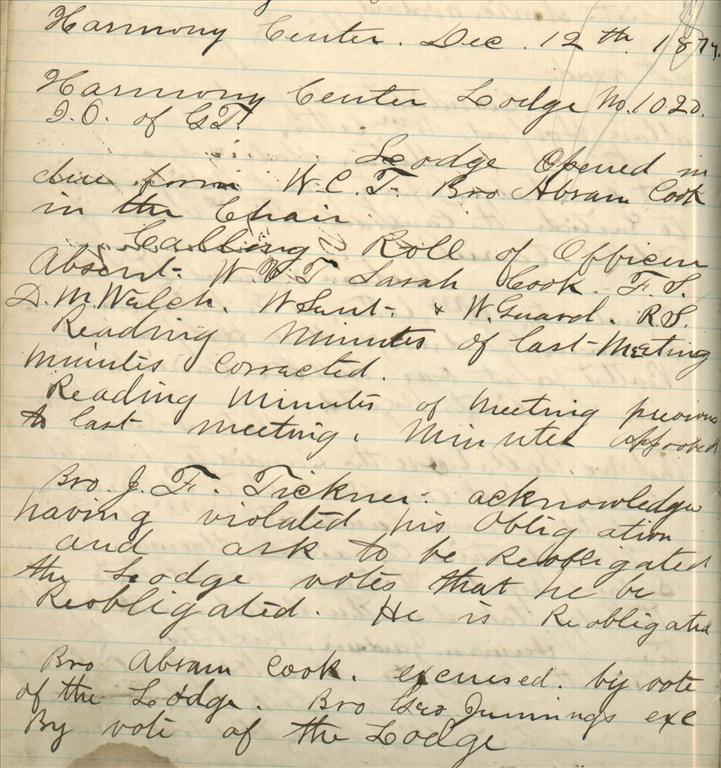 Harmony Center. Dec. 12th. 1879.
Harmony Center Lodge No. 1020.
I.O. of G.T.
Lodge Opened in
due form W.C.T. Bro Abram Cook
in the Chair
Calling Roll of Officers
Absent. W.V.T Sarah Cook. F.S.
D.M. Walch. W Sent. & W. Guard. R.S.
Reading Minutes of last Meeting
minutes Corracted.
Reading Minutes of Meeting previous
to last meeting. Minutes Approved
Bro. J. F. Tickner. acknowledge
having violated his Obligation
and ask to be Reobligated
the Lodge votes that he be
Reobligated. He is Reobligated
Bro Abram Cook. excused. by vote
of the Lodge. Bro Geo Jennings exc
By vote of the Lodge